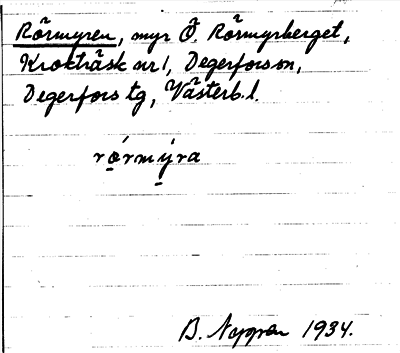 Rörmyren, myr Ö. Rörmyrberget,
Krokträsk nr 1, Degerfors sn,
Degerfors tg, Västerb. l.
rö́rmýra
B. Nygren 1934.